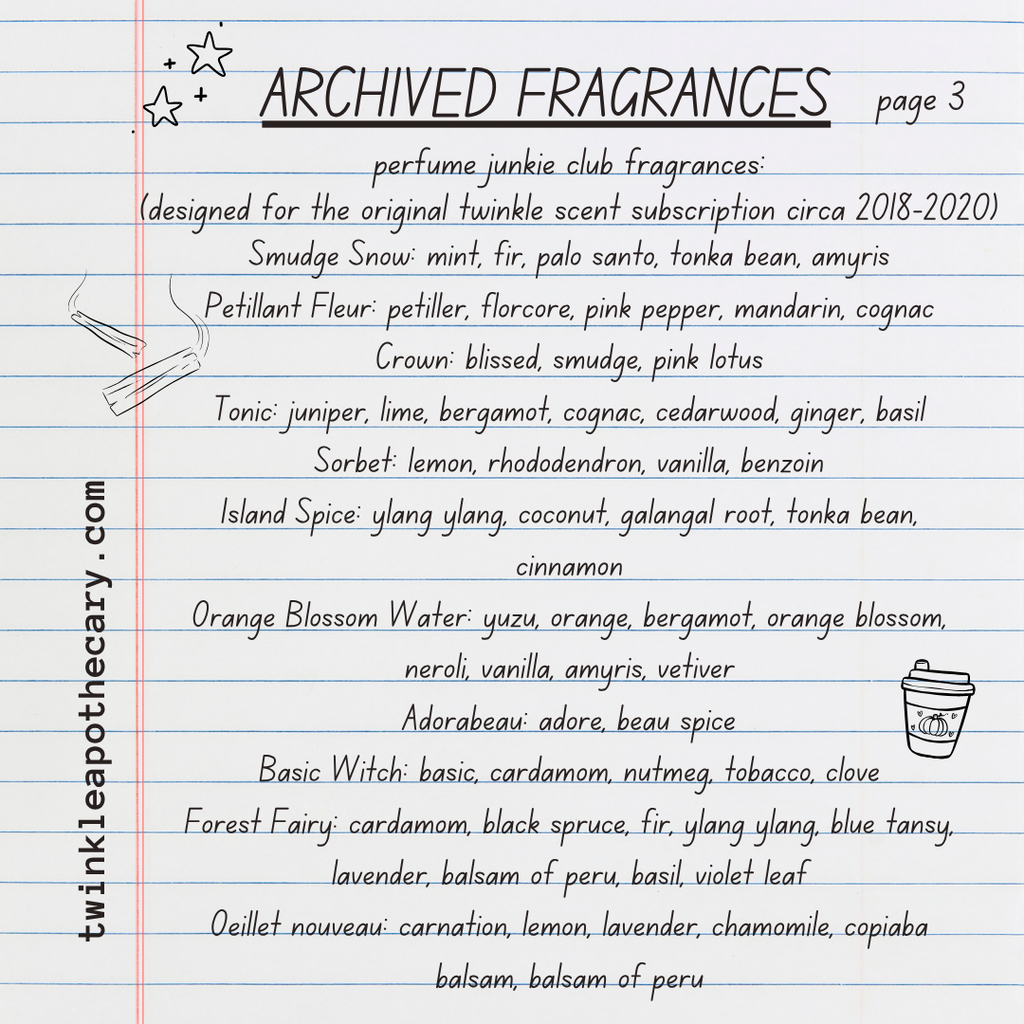 ARCHIVED FRAGRANCES page 3
perfume junkie club fragrances:
(designed for the original twinkle scent subscription circa 2018-2020)
Smudge Snow: mint, fir, palo santo, tonka bean, amyris
Petillant Fleur: petiller, florcore, pink pepper, mandarin, cognac
Crown: blissed, smudge, pink lotus
Tonic: juniper, lime, bergamot, cognac, cedarwood, ginger, basil
Sorbet: lemon, rhododendron, vanilla, benzoin
Island Spice: ylang ylang, coconut, galangal root, tonka bean,
cinnamon
Orange Blossom Water: yuzu, orange, bergamot, orange blossom,
neroli, vanilla, amyris, vetiver
Adorabeau: adore, beau spice
Basic Witch: basic, cardamom, nutmeg, tobacco, clove
Forest Fairy: cardamom, black spruce, fir, ylang ylang, blue tansy,
lavender, balsam of peru, basil, violet leaf
Oeillet nouveau: carnation, lemon, lavender, chamomile, copiaba
balsam, balsam of peru
twinkleapothecary.com